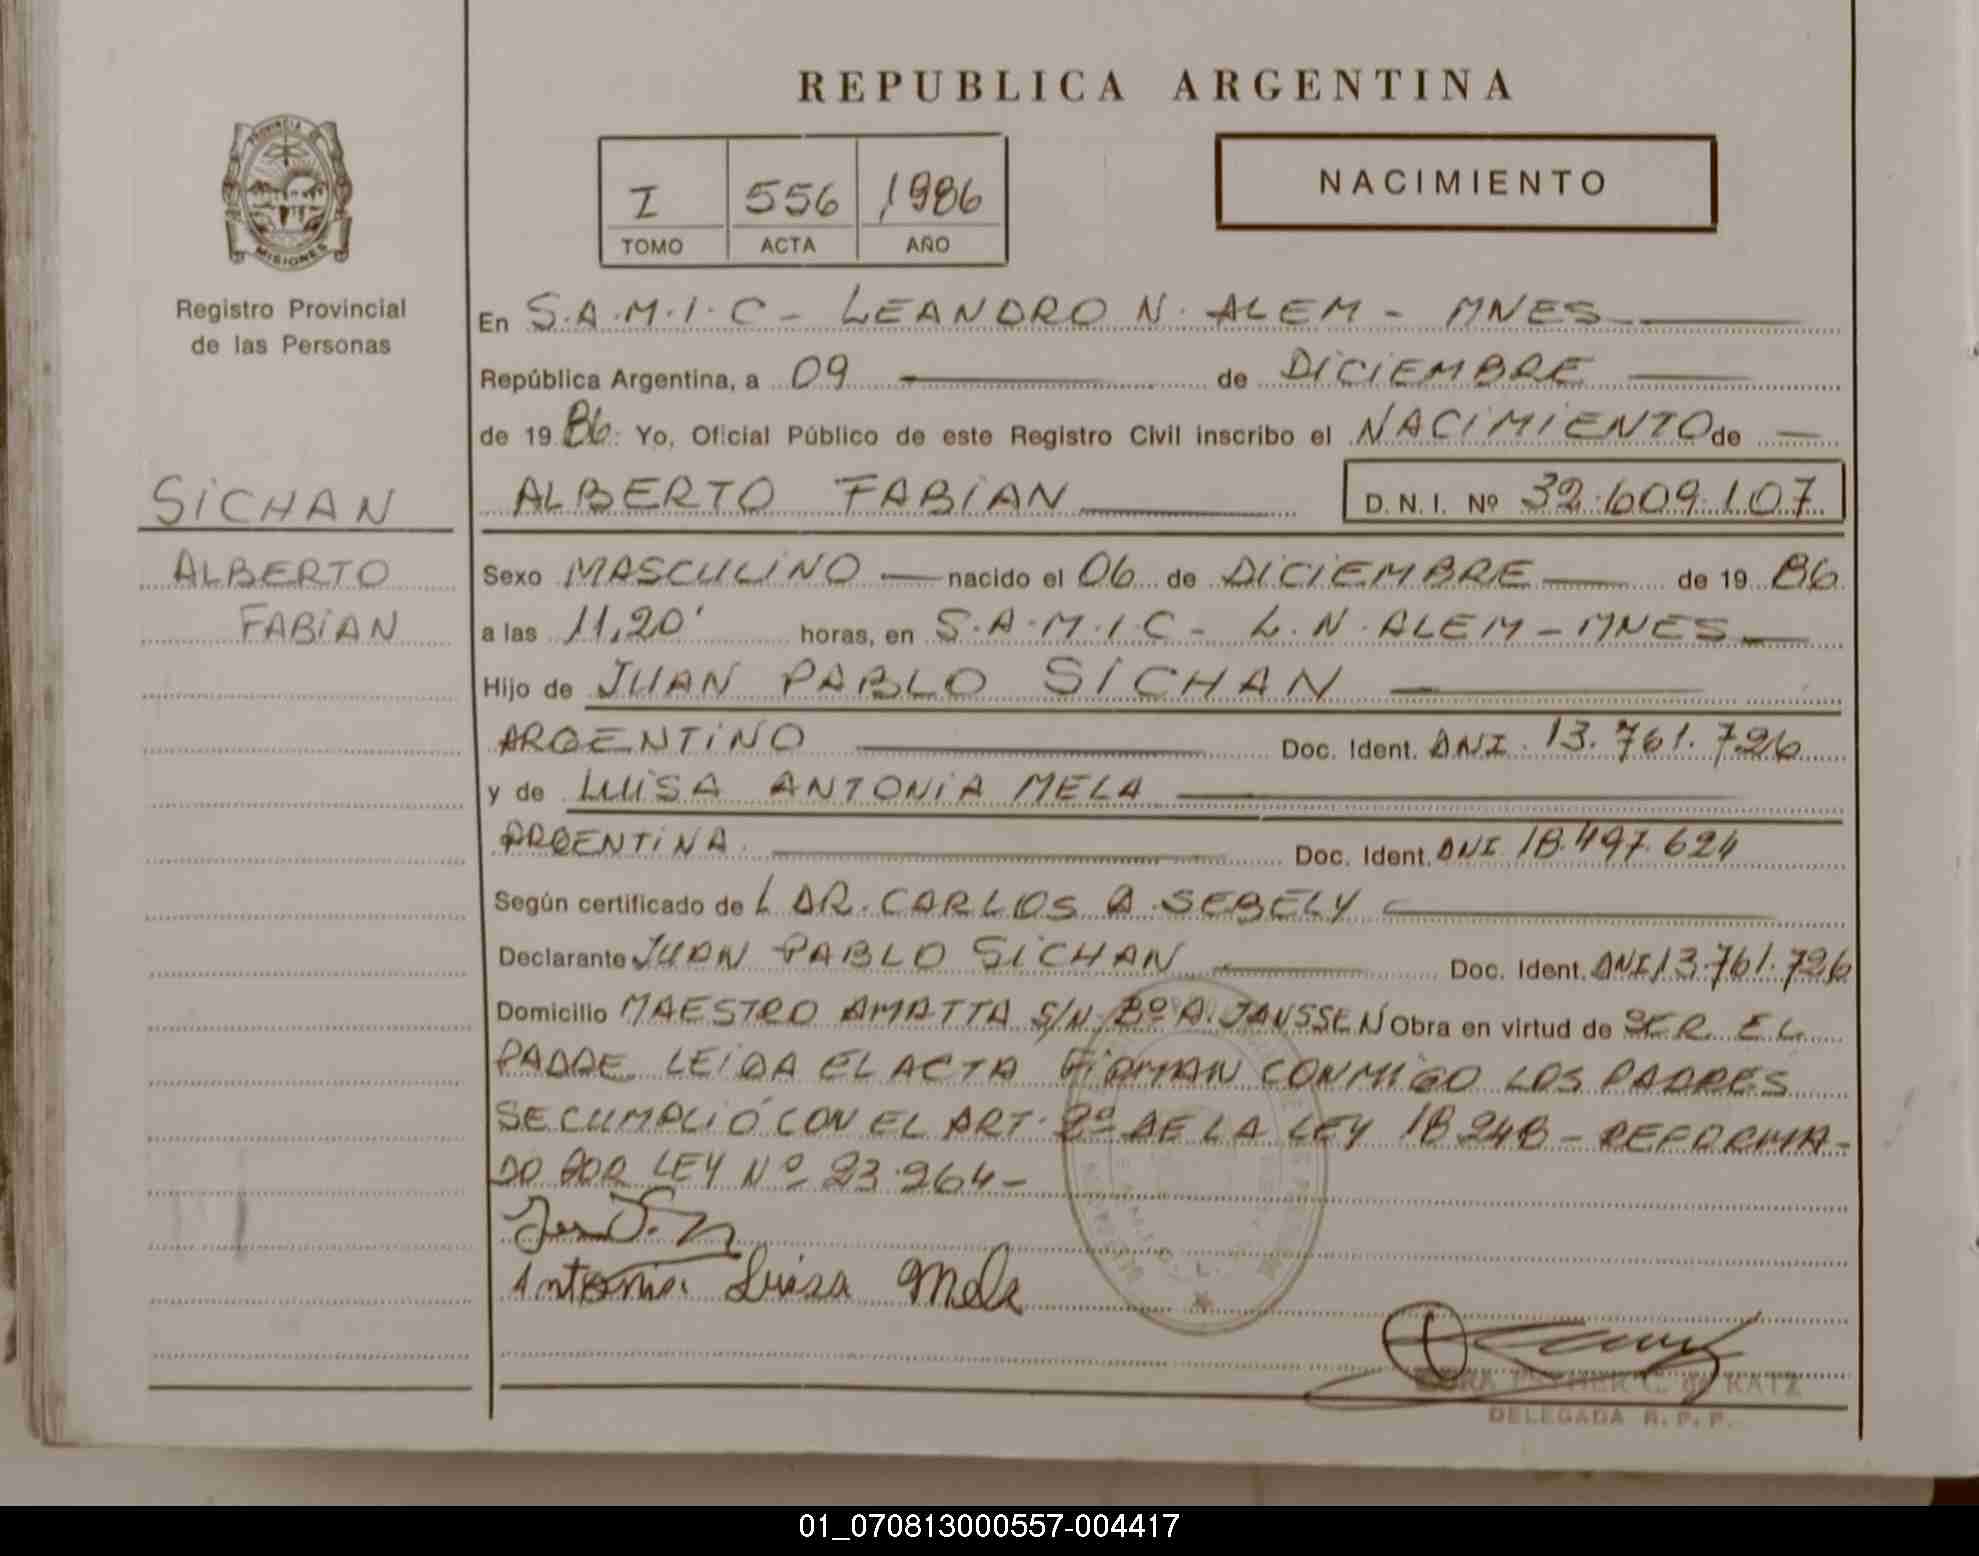 REPUBLICA ARGENTINA
PROVINCIA DE
MISIONES
Registro Provincial
de las Personas
I 556 1986
TOMO ACTA AÑO
NACIMIENTO
En S.A.M.I.C - LEANDRO N. ALEM - MNES
República Argentina, a 09 de DICIEMBRE
de 19 86: Yo, Oficial Público de este Registro Civil inscribo el NACIMIENTO de
SICHAN
ALBERTO
FABIAN
ALBERTO FABIAN D.N.I. Nº 32.609.107
Sexo MASCULINO nacido el 06 de DICIEMBRE de 19 86
a las 11,20' horas, en S.A.M.I.C - L.N. ALEM - MNES
Hijo de JUAN PABLO SICHAN
ARGENTINO Doc. Ident. DNI. 13.761.726
y de LUISA ANTONIA MELA
ARGENTINA. Doc. Ident. DNI 18.497.624
Según certificado de L DR. CARLOS A. SEBELY
Declarante JUAN PABLO SICHAN Doc. Ident. DNI 13.761.726
Domicilio MAESTRO AMATTA S/N Bº A. JANSSEN Obra en virtud de SER EL
PADRE LEIDA EL ACTA FIRMAN CONMIGO LOS PADRES
SE CUMPLIÓ CON EL ART. 2º DE LA LEY 18248 - REFORMA-
DO POR LEY Nº 23.264 -
Antonia Luisa Mela
C. de KATZ
DELEGADA R.P.P.
01_070813000557-004417